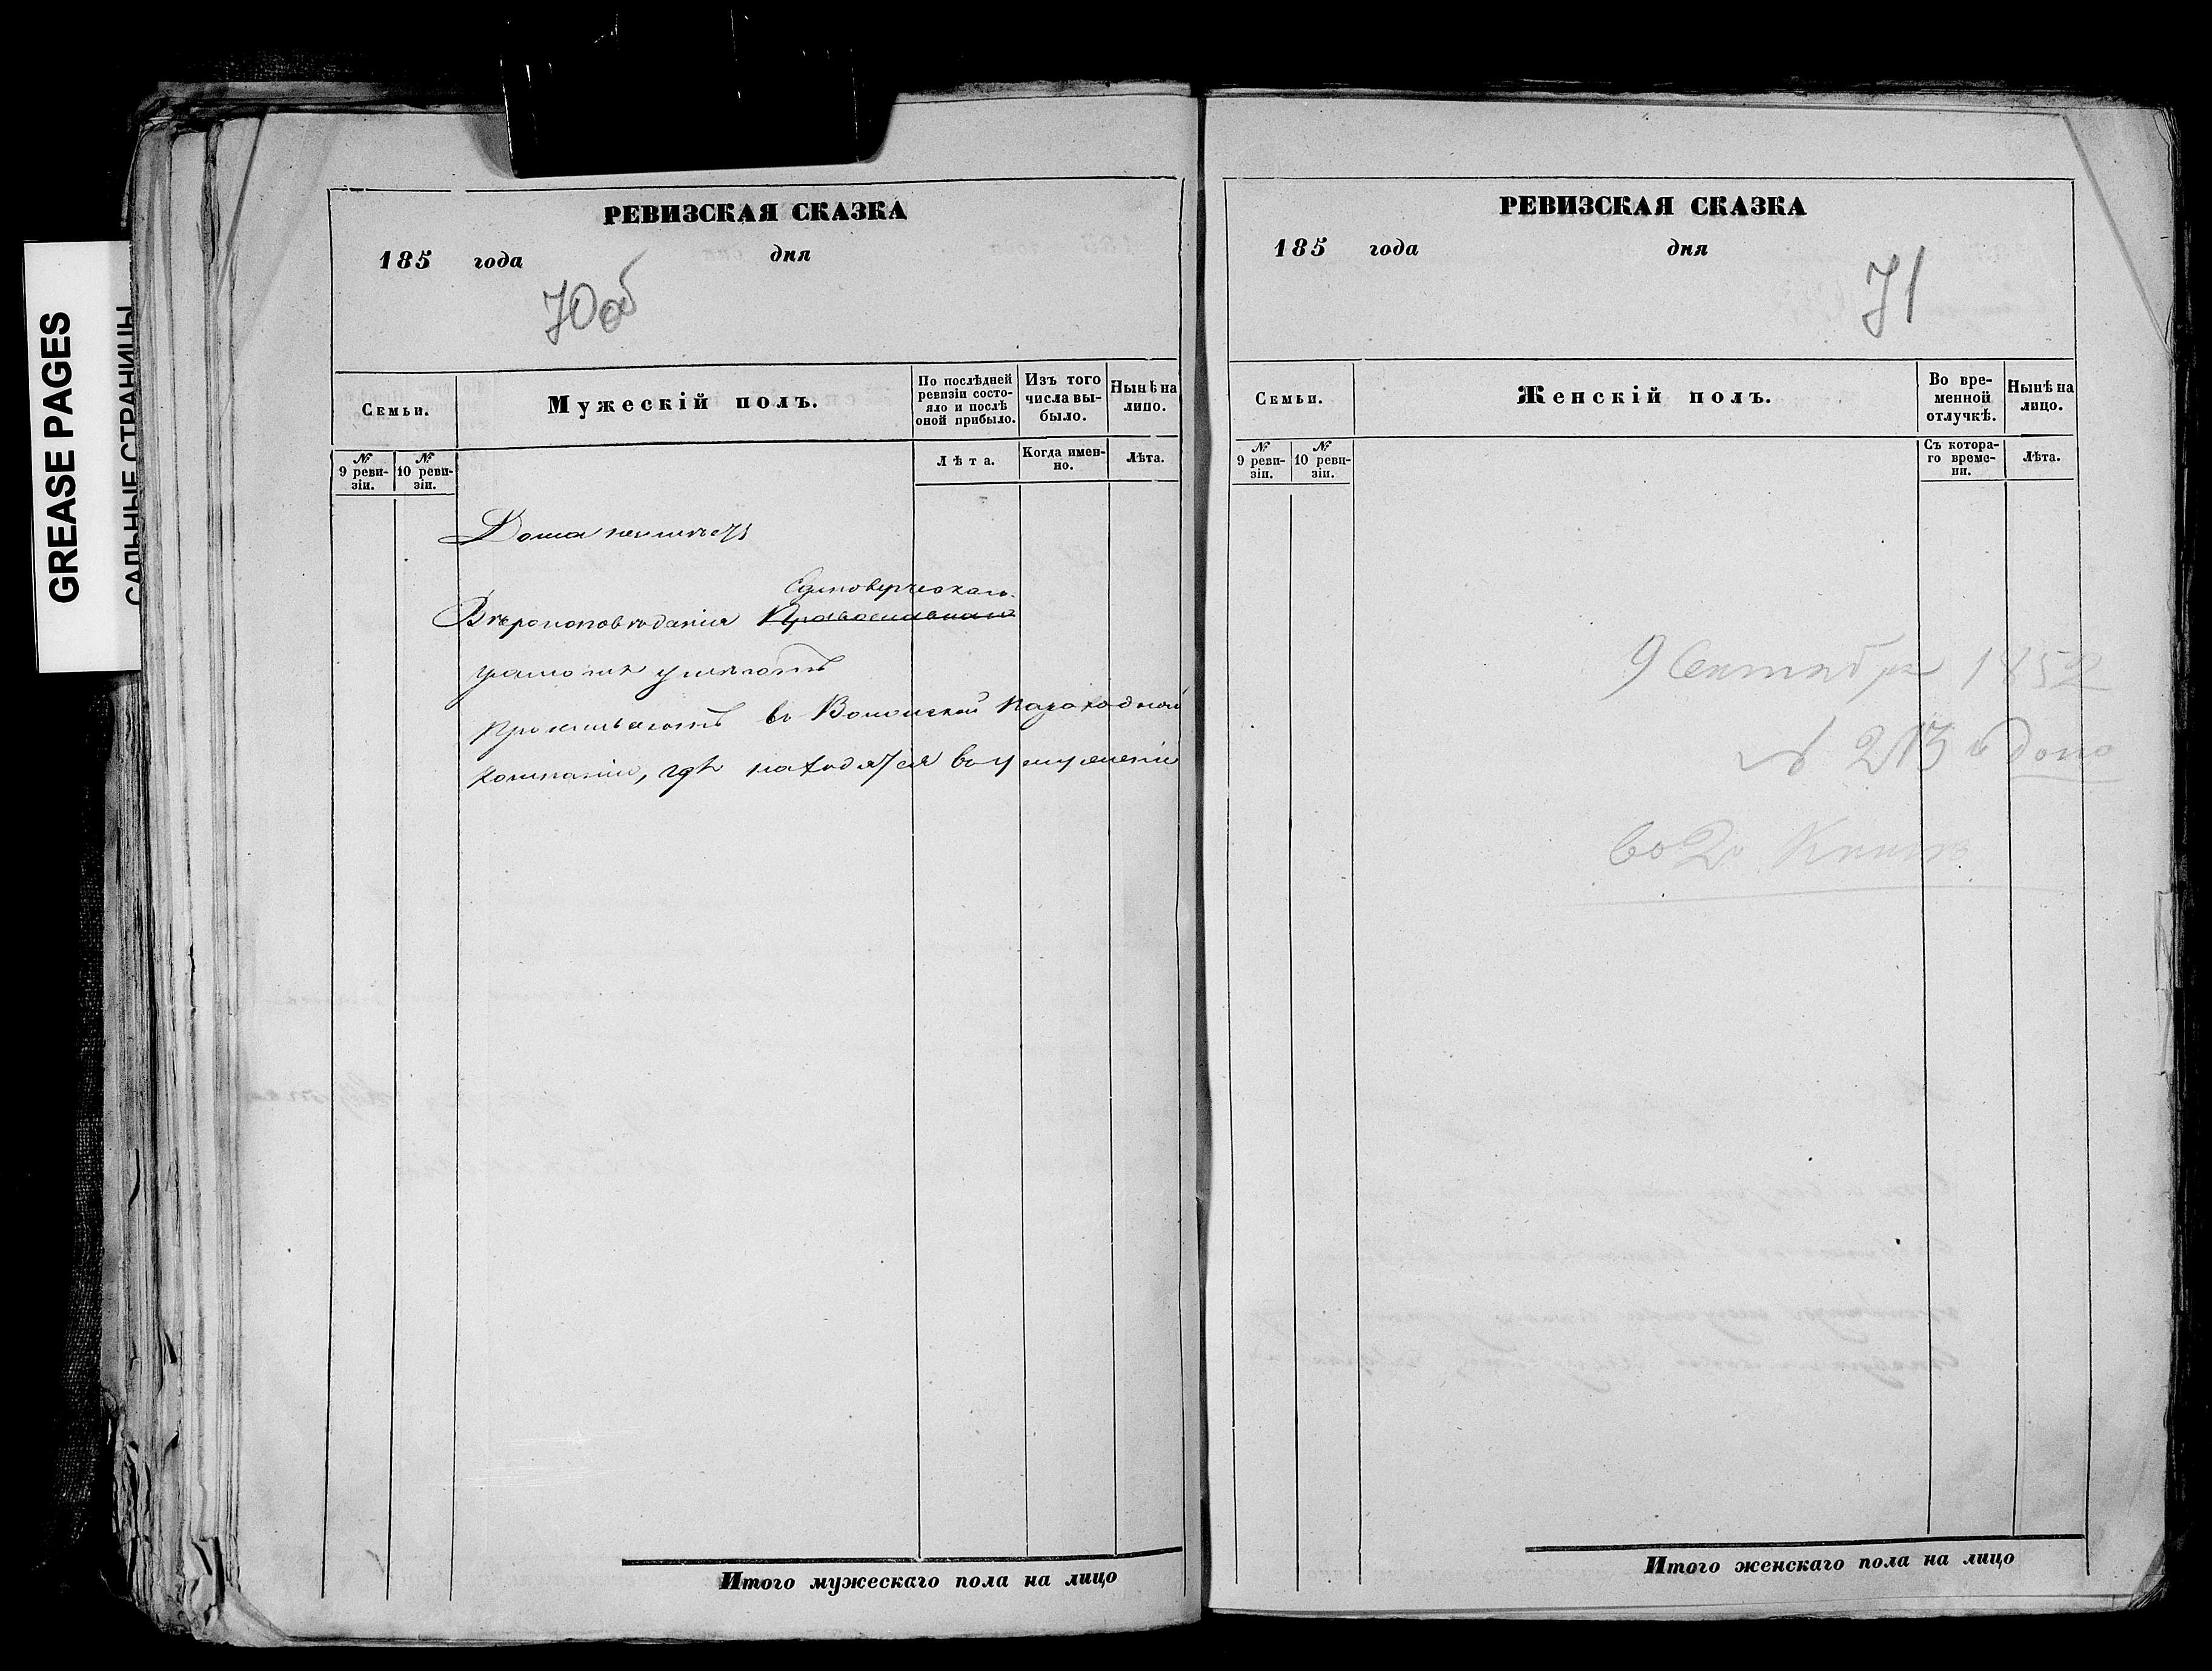 GREASE PAGES
САЛЬНЫЕ СТРАНИЦЫ
РЕВИЗСКАЯ СКАЗКА
185 года дня
70об
Семьи.
Мужескій полъ.
По послѣдней ревизіи состояло и послѣ оной прибыло.
Изъ того числа выбыло.
Нынѣ на лицо.
№ 9 ревизіи.
№ 10 ревизіи.
Лѣта.
Когда именно.
Лѣта.
Дома неимѣетъ
Единоверческаго
Вѣроисповѣданія Православнаго
грамотѣ умѣютъ
Проживаютъ въ Волжской Пароходной
Компаніи, гдѣ находятся въ услуженіи
Итого мужескаго пола на лицо
РЕВИЗСКАЯ СКАЗКА
185 года дня
71
Семьи.
Женскій полъ.
Во временной отлучкѣ.
Нынѣ на лицо.
№ 9 ревизіи.
№ 10 ревизіи.
Съ котораго времени.
Лѣта.
9 Сентября 1852
№ 213
во 2й Книгѣ
Итого женскаго пола на лицо